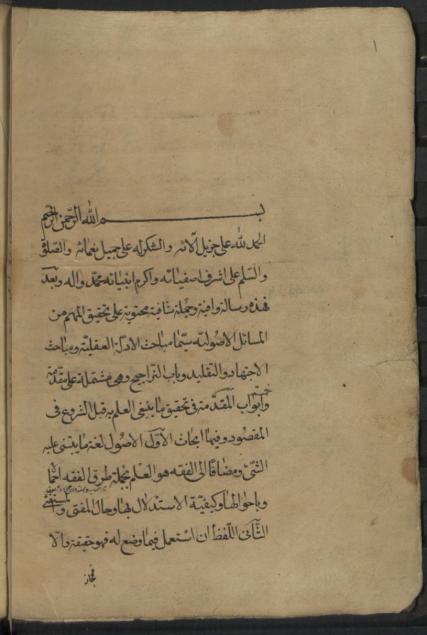 بسم الله الرحمن الرحيم
الحمد لله على جزيل آلائه والشكر له على جميل نعمائه والصلوة
والسلم على اشرف اصفيائه واكرم انبيائه محمد واله وبعد
فهذه رسالة وافية وجملة شافية محتوية على تحقيق المهم من
المسائل الاصولية سيما مباحث الادلة العقلية ومباحث
الاجتهاد والتقليد وباب التراجيح وهى مشتملة على مقدمة
وابواب المقدمة فى تحقيق ما ينبغى العلم به قبل الشروع فى
المقصود وفيها ابحاث الاول الاصول لغة ما يبتنى عليه
الشئ ومضافا الى الفقه هو العلم بجملة طرق الفقه اجمالا
وباحوالها وكيفية الاستدلال بها وحال المفتى والمستفتى
الثانى اللفظ ان استعمل فيما وضع له فهو حقيقة والا
فمجاز